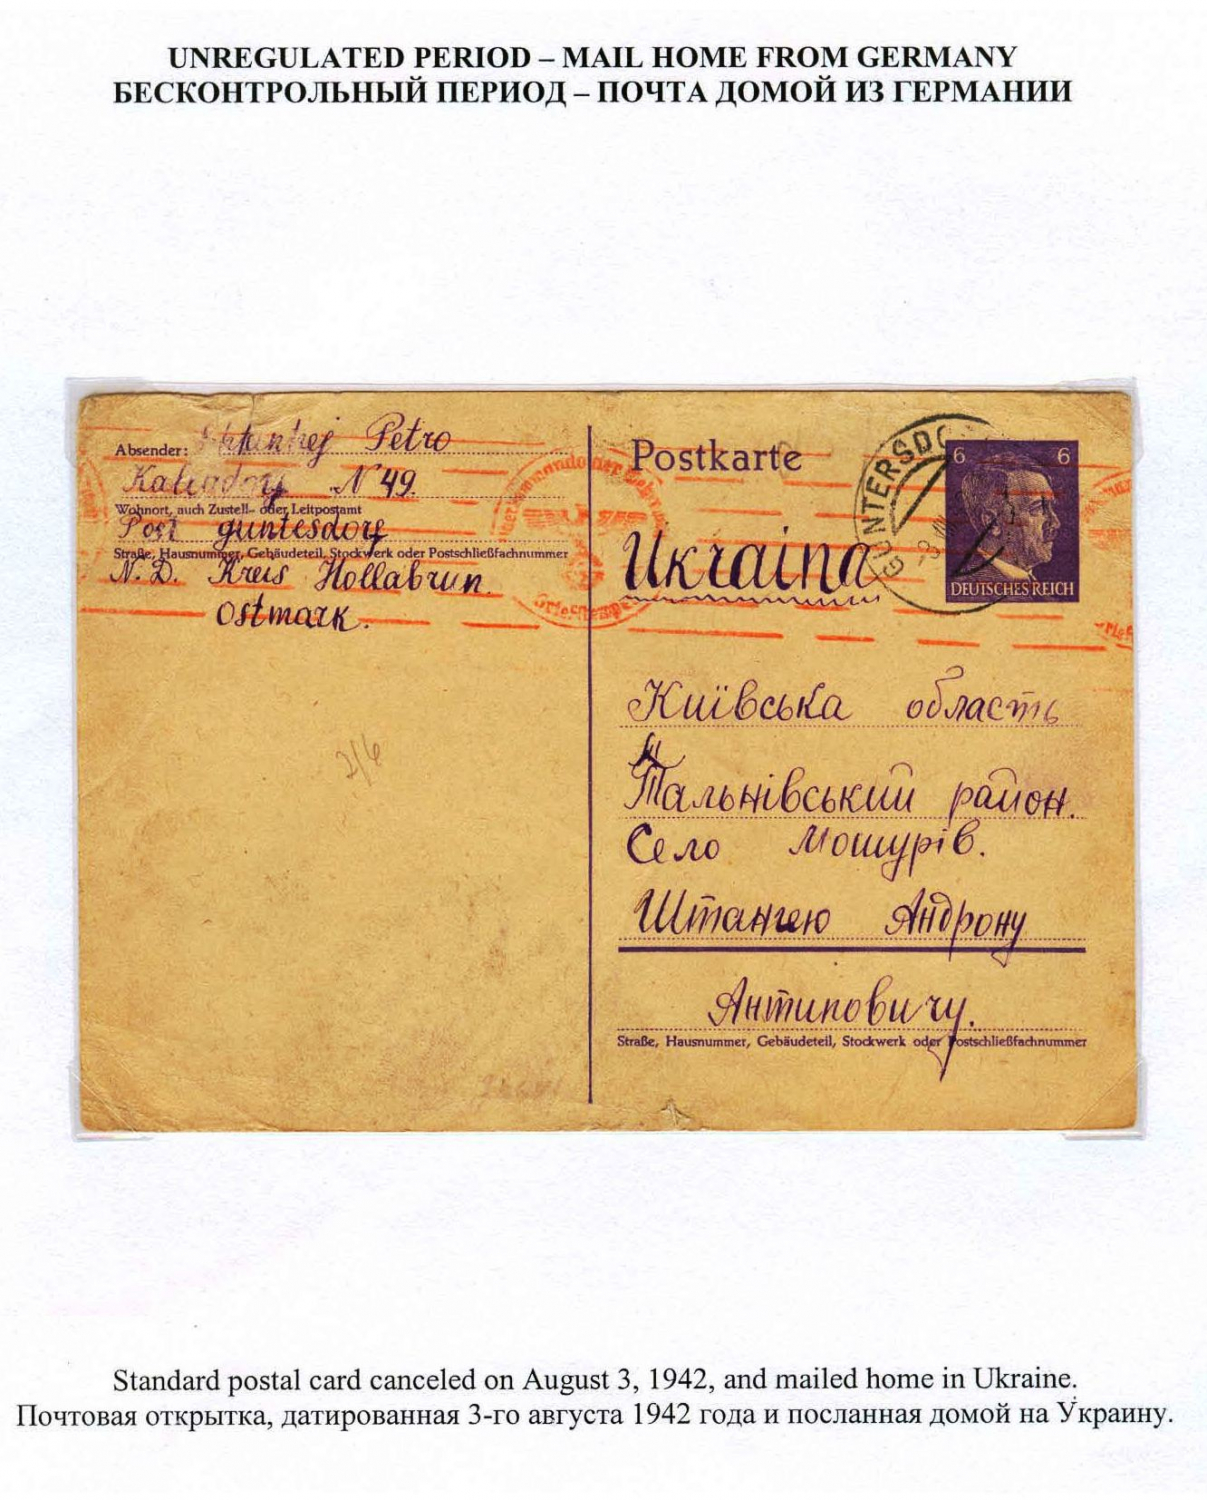 UNREGULATED PERIOD – MAIL HOME FROM GERMANY
БЕСКОНТРОЛЬНЫЙ ПЕРИОД – ПОЧТА ДОМОЙ ИЗ ГЕРМАНИИ
Absender: Petro
N 49.
Wohnort, auch Zustell- oder Leitpostamt
Post guntesdorf
Straße, Hausnummer, Gebäudeteil, Stockwerk oder Postschließfachnummer
N. D. Kreis Hollabrun.
Ostmark.
2/6
Postkarte
GUNTERSDO
6 6
DEUTSCHES REICH
Ukraina
Київська область
Тальнівський район.
Село Мошурів.
Штангею Андрону
Антиповичу.
Straße, Hausnummer, Gebäudeteil, Stockwerk oder Postschließfachnummer
Standard postal card canceled on August 3, 1942, and mailed home in Ukraine.
Почтовая открытка, датированная 3-го августа 1942 года и посланная домой на Украину.